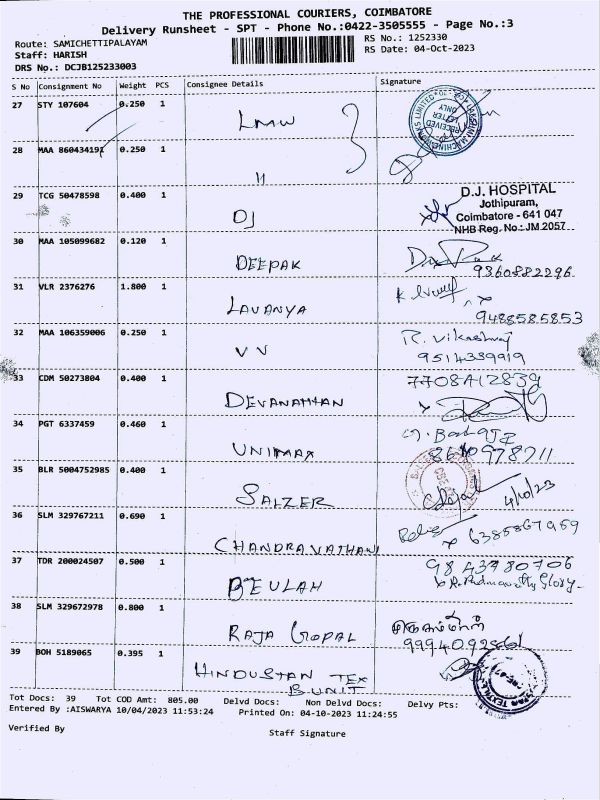 THE PROFESSIONAL COURIERS, COIMBATORE
Delivery Runsheet - SPT - Phone No.:0422-3505555 - Page No.:3
Route: SAMICHETTIPALAYAM
Staff: HARISH
DRS No.: DCJB125233003
RS No.: 1252330
RS Date: 04-Oct-2023
S No Consignment No Weight PCS Consignee Details Signature
27 STY 107604 0.250 1 LMW
RECEIVED LETTER ONLY
28 MAA 860434191 0.250 1 "
29 TCG 50478598 0.400 1 DJ
D.J. HOSPITAL
Jothipuram,
Coimbatore - 641 047
NHB Reg. No: JM 2057
30 MAA 105099682 0.120 1 DEEPAK
9360882296
31 VLR 2376276 1.800 1 LAVANYA
9488585853
32 MAA 106359006 0.250 1 VV
R. Vikashraj
9514339919
33 CDM 50273804 0.400 1 DEVANATHAN
7708412839
34 PGT 6337459 0.460 1 UNIMAX
35 BLR 5004752985 0.400 1 SALZER
4/10/23
36 SLM 329767211 0.690 1 CHANDRAVATHANI
6385867959
37 TDR 200024507 0.500 1 BEULAH
9843780706
38 SLM 329672978 0.800 1 RAJA GOPAL
39 BOH 5189065 0.395 1 HINDUSTAN TEX
B UNIT
Tot Docs: 39 Tot COD Amt: 805.00 Delvd Docs: Non Delvd Docs: Delvy Pts:
Entered By :AISWARYA 10/04/2023 11:53:24 Printed On: 04-10-2023 11:24:55
Verified By
Staff Signature